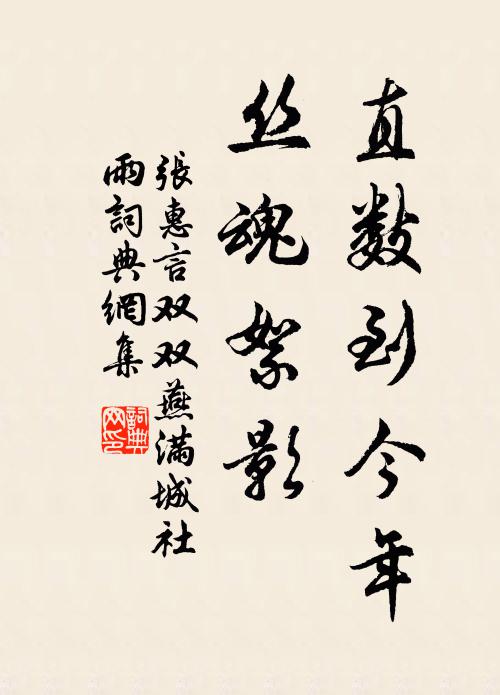 直数到今年
丝魂絮影
張惠言双双燕满城社
雨詞典網集
詞典网印